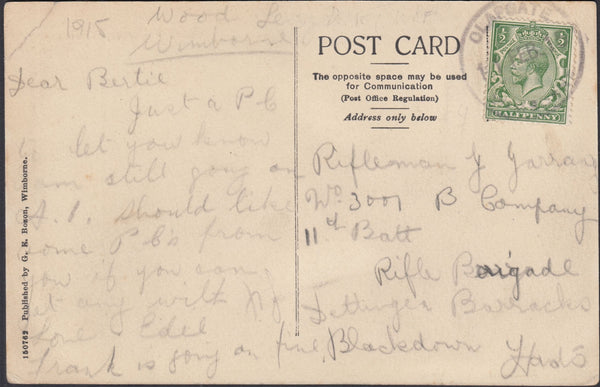 1915 Wood
Wimborne
Dear Bertie
Just a P C
to let you know
am still going on
A.1. should like
some P C's from
you if you can
get any with
Love Edie
Frank is going on fine
150762 Published by G. E. Boson, Wimborne.
POST CARD
The opposite space may be used
for Communication
(Post Office Regulation)
Address only below
½ ½
HALFPENNY
Rifleman J
No 3001 B Company
11th Batt
Rifle Brigade
Dettingen Barracks
Blackdown
Hants